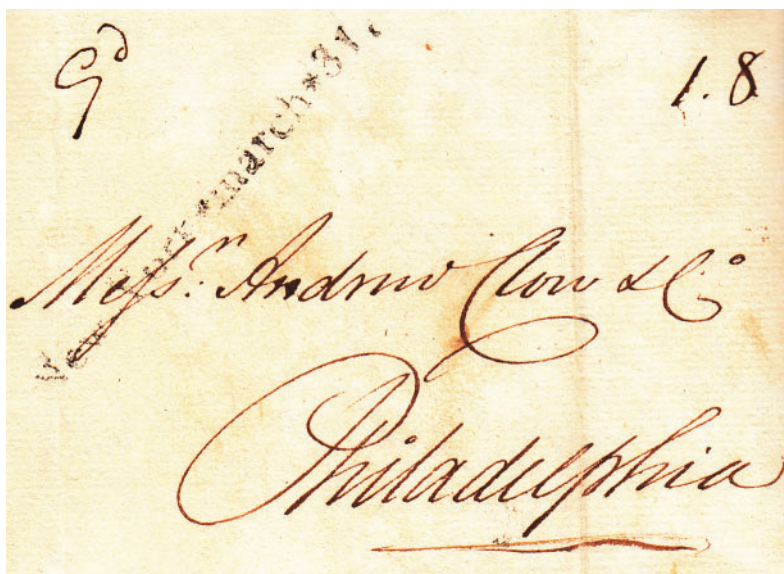 9d
1.8
New York*march*31.
Messrs. Andrew Clow & Co
Philadelphia